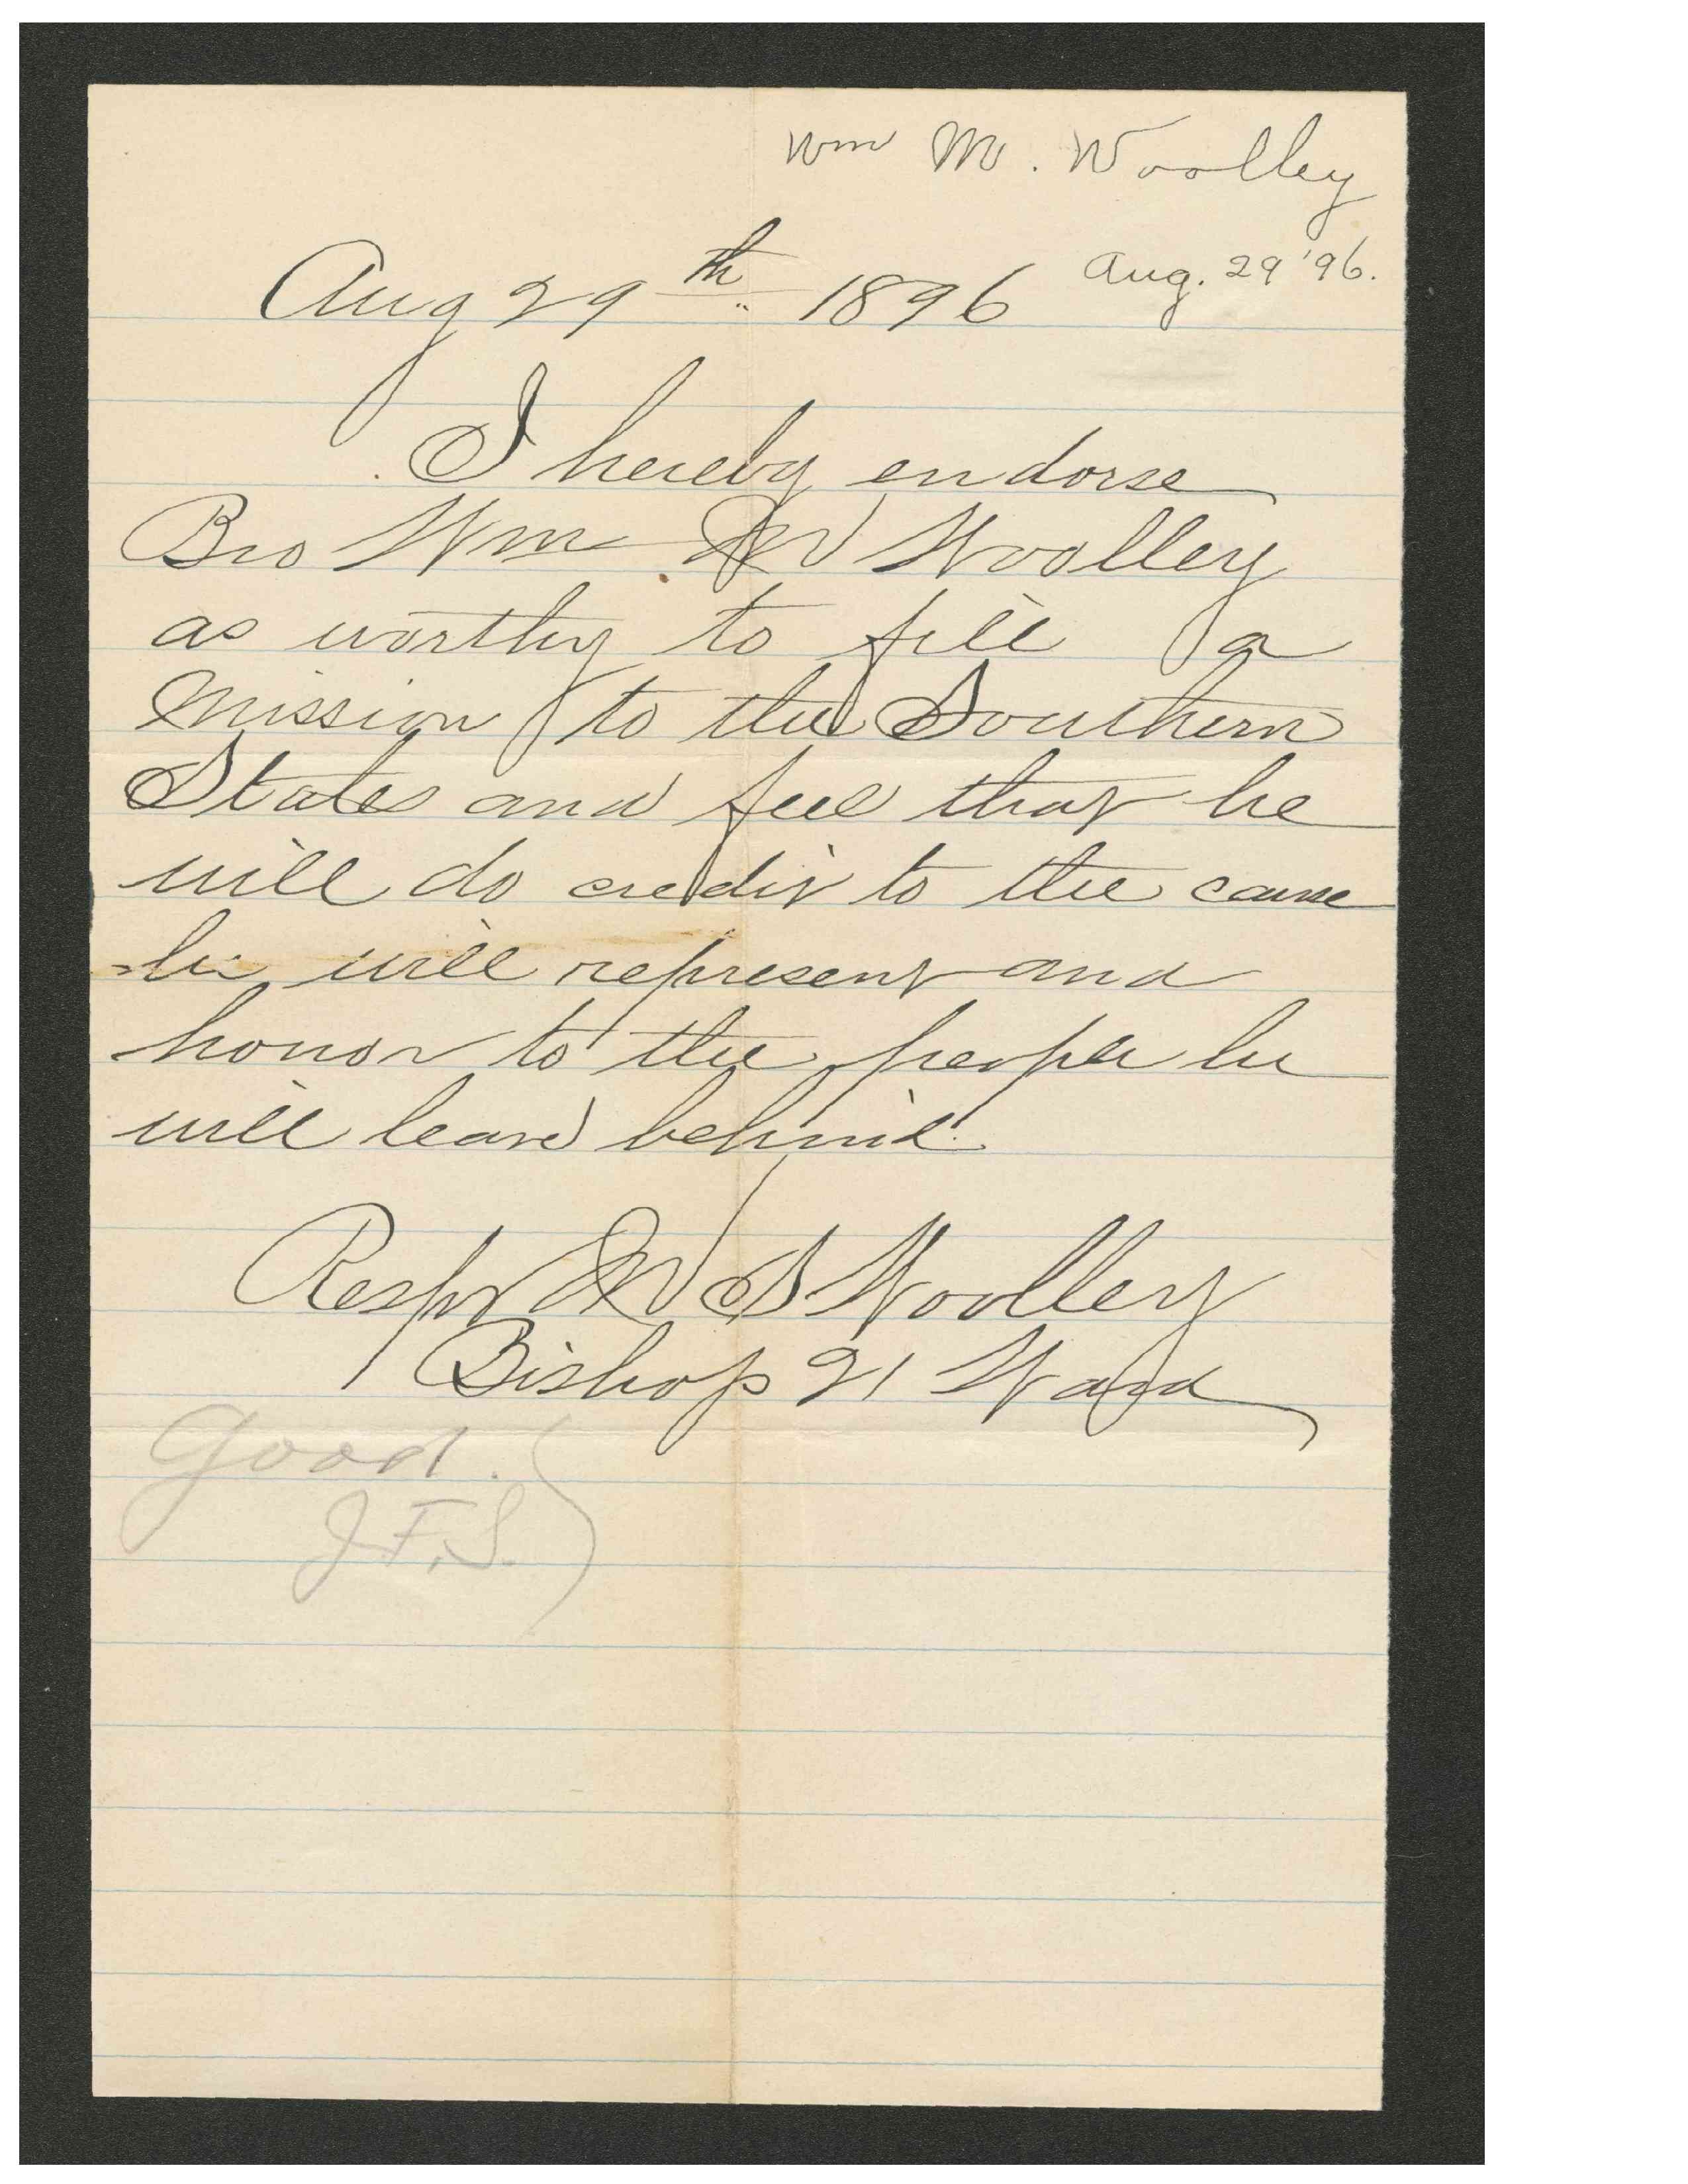 Wm M. Woolley
Aug. 29 '96.
Aug 29th 1896
I hereby endorse
Bro Wm M Woolley
as worthy to fill a
Mission to the Southern
States and feel that he
will do credit to the cause
he will represent and
honor to the people he
will leave behind.
Respt M S Woolley
Bishop 21 Ward
Good.
J. F. S.